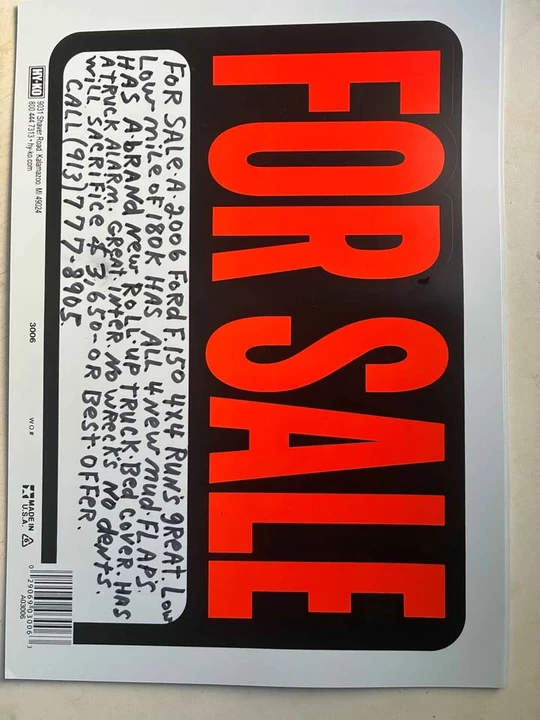 FOR SALE
FOR SALE. A. 2006 FORD F. 150 4X4 RUN'S GREAT. LOW
LOW MILE OF 180K HAS ALL 4 NEW MUD FLAPS
HAS A. BRAND NEW ROLL. UP TRUCK. BED COVER. HAS
A TRUCK ALARM. GREAT INTER. NO WRECKS NO DENTS.
WILL SACRIFICE $3,650-OR BEST. OFFER.
CALL (913) 777-8905.
HY-KO
9031 Shaver Road, Kalamazoo, MI 49024
800 444 7313 • hy-ko.com
3006
W.O.#
MADE IN
U.S.A.
0 29069 03006 3
A03006